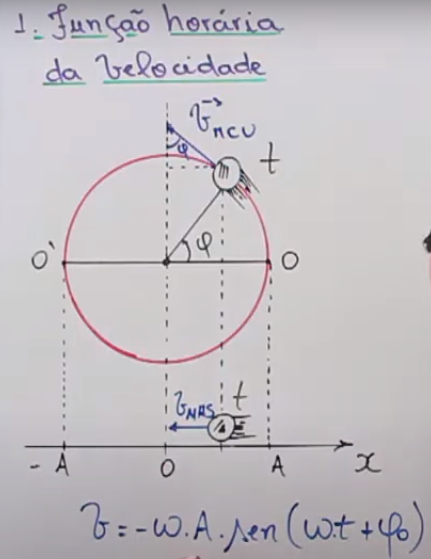 1. Função horária
da Velocidade
v⃗MCU
φ
m
t
φ
O'
O
vMHS
t
- A
O
A
x
v = -ω.A.sen(ωt+φ₀)